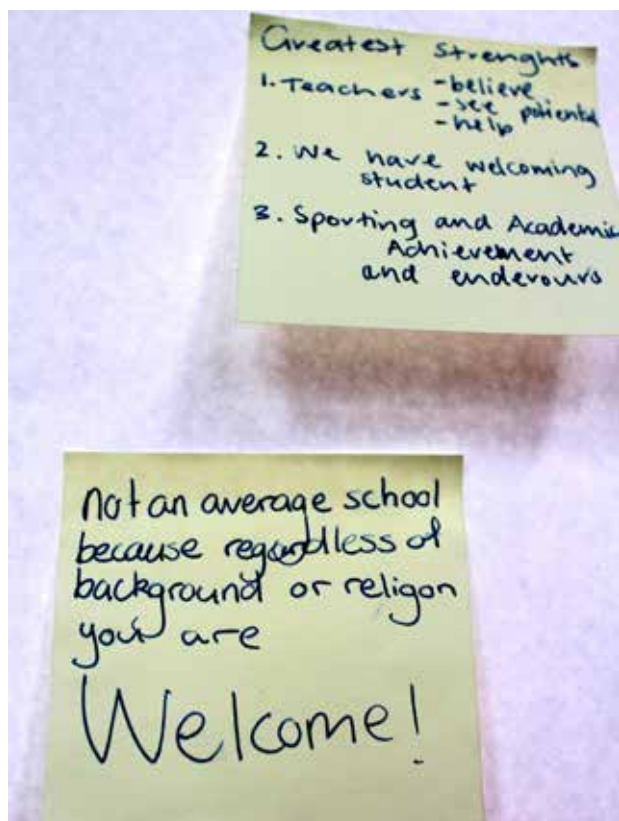 Greatest Strenghts
1. Teachers -believe
-see potiental
-help
2. We have welcoming
student
3. Sporting and Academic
Achievement
and enderours
not an average school
because regardless of
background or religon
you are
Welcome!